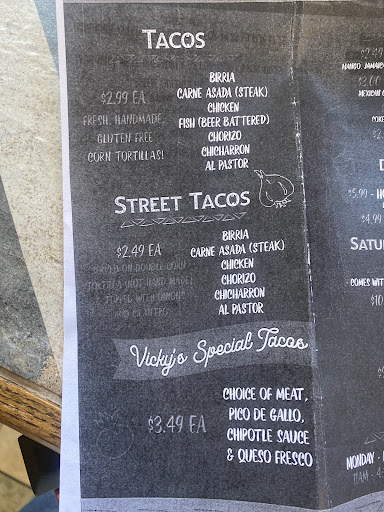 TACOS
$2.99 EA
FRESH, HANDMADE,
GLUTEN FREE
CORN TORTILLAS!
BIRRIA
CARNE ASADA (STEAK)
CHICKEN
FISH (BEER BATTERED)
CHORIZO
CHICHARRON
AL PASTOR
STREET TACOS
$2.49 EA
SERVED ON DOUBLE CORN
TORTILLA (NOT HAND MADE)
& TOPPED WITH ONIONS
AND CILANTRO
BIRRIA
CARNE ASADA (STEAK)
CHICKEN
CHORIZO
CHICHARRON
AL PASTOR
Vicky's Special Tacos
$3.49 EA
CHOICE OF MEAT,
PICO DE GALLO,
CHIPOTLE SAUCE
& QUESO FRESCO
$2.49
MANGO, JAMAIC
$3.00
MEXICAN
COKE
$5.99 - HO
$4.99
SATU
COMES WIT
$10
MONDAY -
11AM - 4